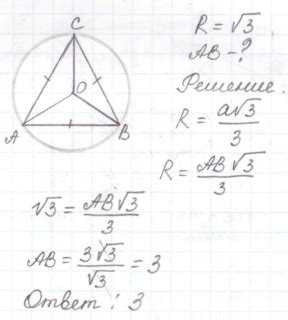 C
O
A
B
R = √3
AB - ?
Решение.
R = a√3/3
R = AB √3/3
√3 = AB√3/3
AB = 3√3/√3 = 3
Ответ: 3